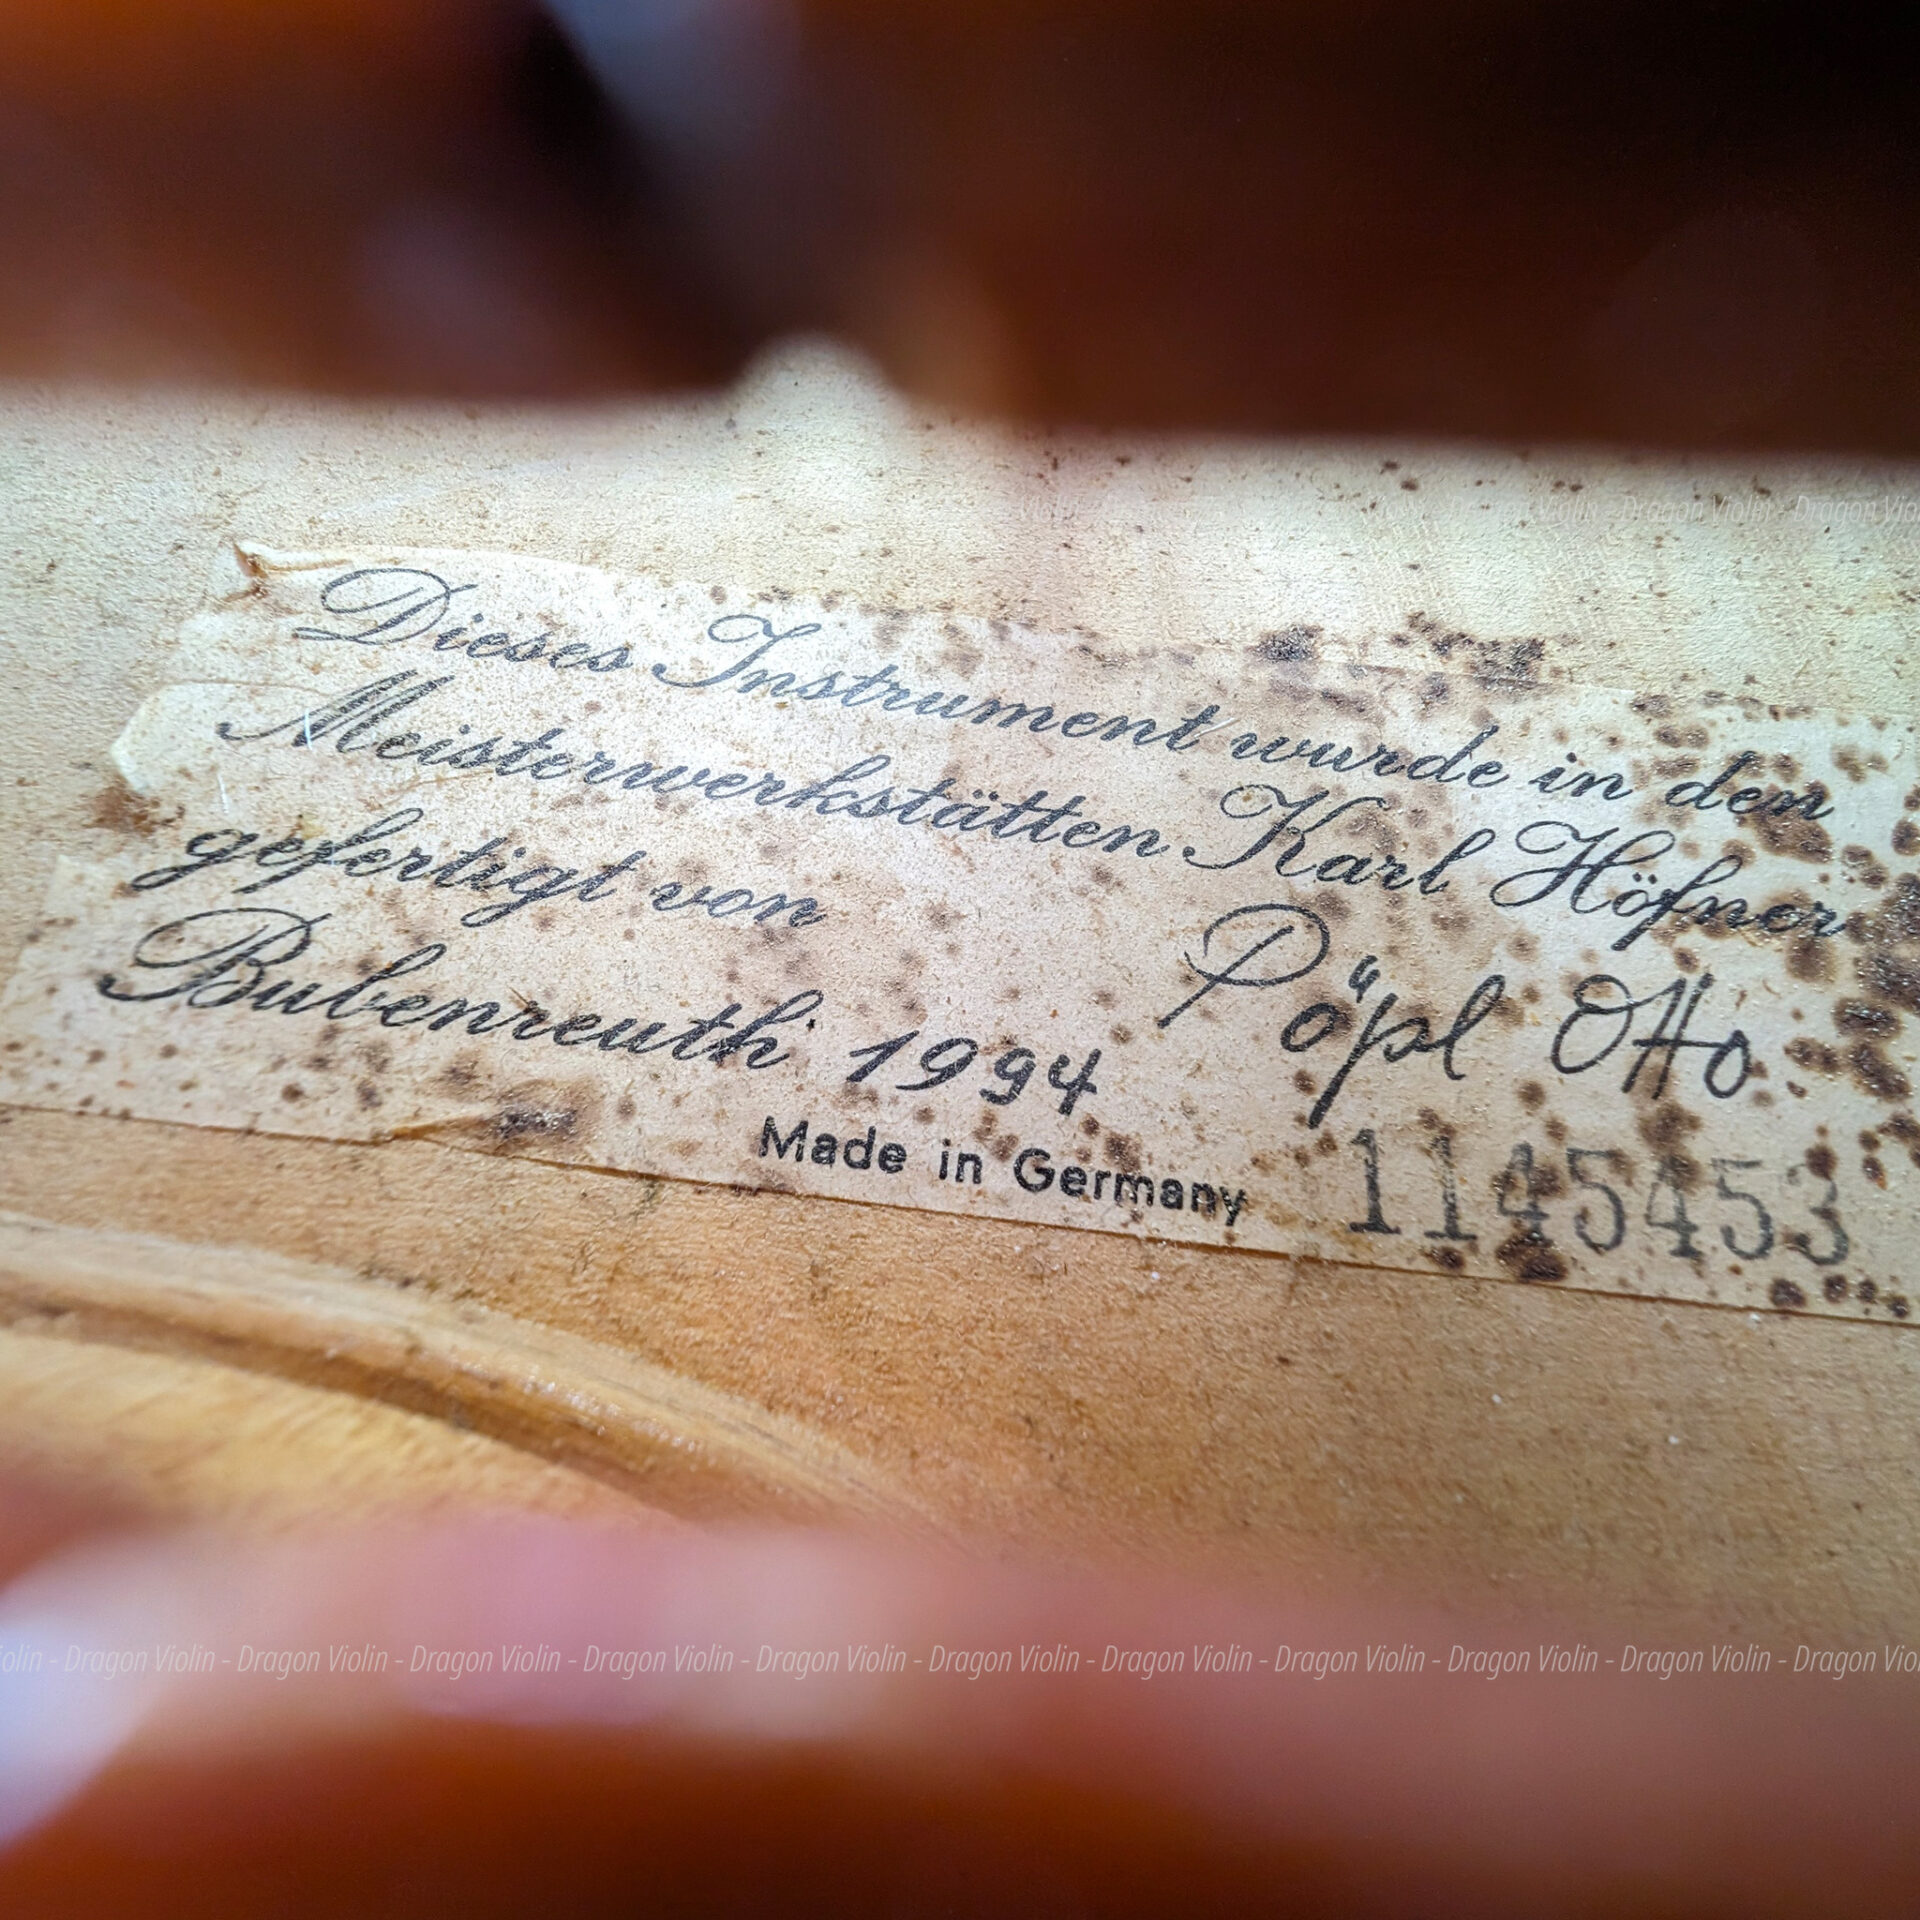 Dieses Instrument wurde in den
Meisterwerkstätten Karl Höfner
gefertigt von Pöpl Otto
Bubenreuth 1994
Made in Germany 1145453
Dragon Violin - Dragon Violin
Dragon Violin - Dragon Violin - Dragon Violin - Dragon Violin - Dragon Violin - Dragon Violin - Dragon Violin - Dragon Violin - Dragon Violin - Dragon Violin